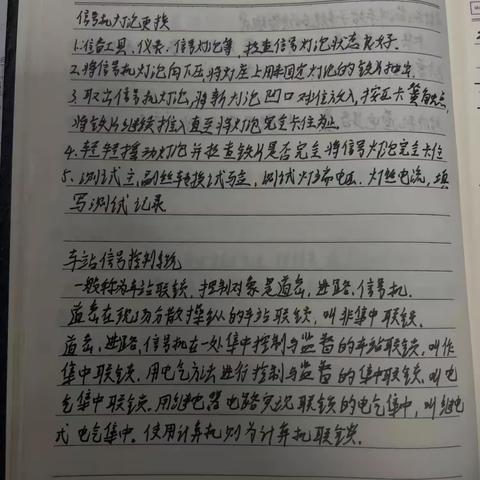 信号机灯泡更换
1.准备工具、仪表、信号灯泡等，检查信号灯泡状态良好。
2.将信号机灯泡向下压，将灯座上用来固定灯泡的铁片抽出。
3.取出信号机灯泡，将新灯泡凹口对位放入，按压卡簧触点，
将铁片继续插入直至将灯泡完全卡住为止。
4.轻轻摇动灯泡并检查铁片是否完全将信号灯泡完全卡住
5、测试主、副丝转换试验，测试灯端电压、灯丝电流，填
写测试记录
车站信号控制系统
一般称为车站联锁，控制对象是道岔、进路、信号机。
道岔在现场分散操纵的车站联锁，叫非集中联锁。
道岔、进路、信号机在一处集中控制与监督的车站联锁，叫作
集中联锁，用电气方法进行控制与监督的集中联锁，叫电
气集中联锁，用继电器电路实现联锁的电气集中，叫继电
式电气集中。使用计算机则为计算机联锁。